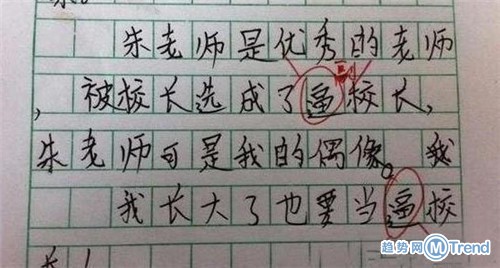 朱老师是优秀的老师
，被校长选成了逼校长，
朱老师可是我的偶像。我
我长大了也要当逼校
趋势网 M Trend